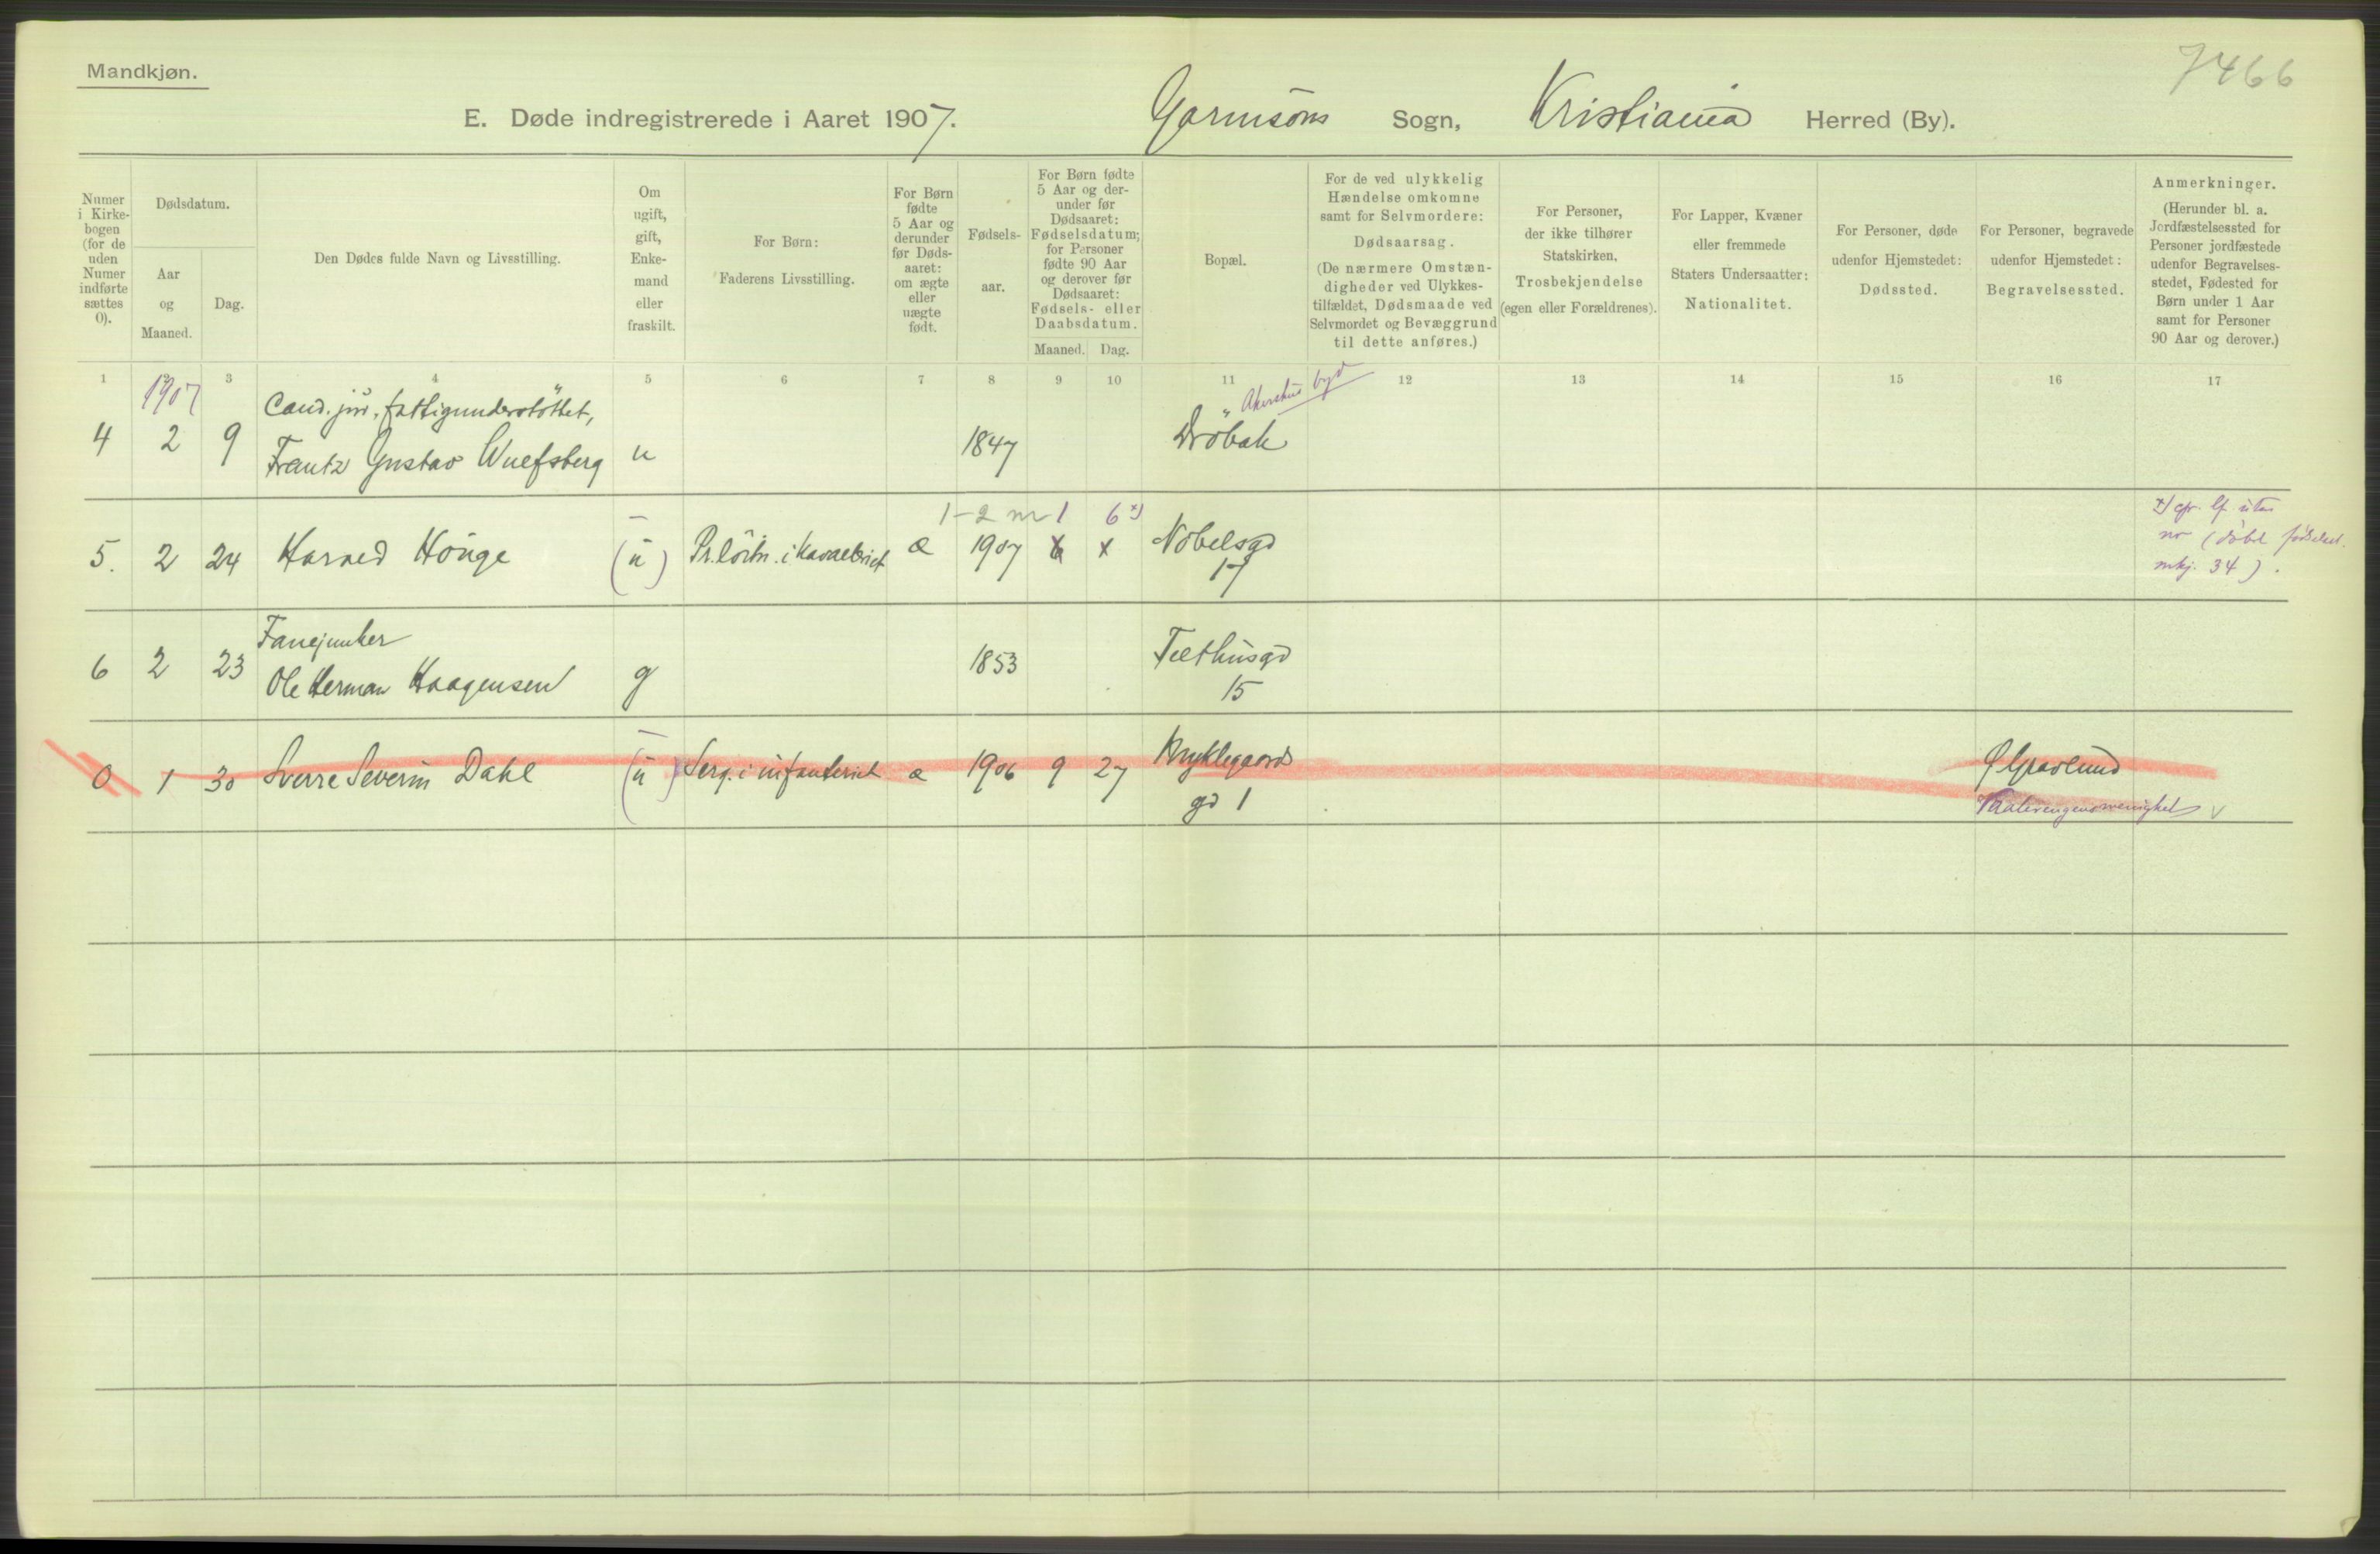 Mandkjøn.
7466
E. Døde indregistrerede i Aaret 1907. Garnisons Sogn, Kristiania Herred (By).
Numer i Kirkebogen (for de uden Numer indførte sættes 0).
Dødsdatum.
Aar og Maaned.
Dag.
Den Dødes fulde Navn og Livsstilling.
Om ugift, gift, Enkemand eller fraskilt.
For Børn: Faderens Livsstilling.
For Børn fødte 5 Aar og derunder før Dødsaaret: om ægte eller uægte født.
Fødselsaar.
For Børn fødte 5 Aar og derunder før Dødsaaret: Fødselsdatum; for Personer fødte 90 Aar og derover før Dødsaaret: Fødsels- eller Daabsdatum.
Maaned. Dag.
Bopæl.
For de ved ulykkelig Hændelse omkomne samt for Selvmordere: Dødsaarsag. (De nærmere Omstændigheder ved Ulykkestilfældet, Dødsmaade ved Selvmordet og Bevæggrund til dette anføres.)
For Personer, der ikke tilhører Statskirken, Trosbekjendelse (egen eller Forældrenes).
For Lapper, Kvæner eller fremmede Staters Undersaatter: Nationalitet.
For Personer, døde udenfor Hjemstedet: Dødssted.
For Personer, begravede udenfor Hjemstedet: Begravelsessted.
Anmerkninger. (Herunder bl. a. Jordfæstelsessted for Personer jordfæstede udenfor Begravelsesstedet, Fødested for Børn under 1 Aar samt for Personer 90 Aar og derover.)
1 2 3 4 5 6 7 8 9 10 11 12 13 14 15 16 17
1907 Cand. jur., fattigunderstöttet, Akershus byd
4 2 9 Frantz Gustav Wuefsberg u 1847 Dröbak
1-2 m 1 6 x)
5. 2 24 Harald Hauge (u) Pr.löitn. i Kavaleriet æ 1907 6 x Nobelsgd 17
x) cfr.
no (döbt födselsl.
mkj. 34).
Fanejunker
6 2 23 Ole Herman Haagensen g 1853 Tilthusgd 15
0 1 30 Sverre Severin Dahl (u) Serg. i infanteriet æ 1906 9 27 Bryklegaards gd 1 Ø Gravlund
Vaalerengens menighet v